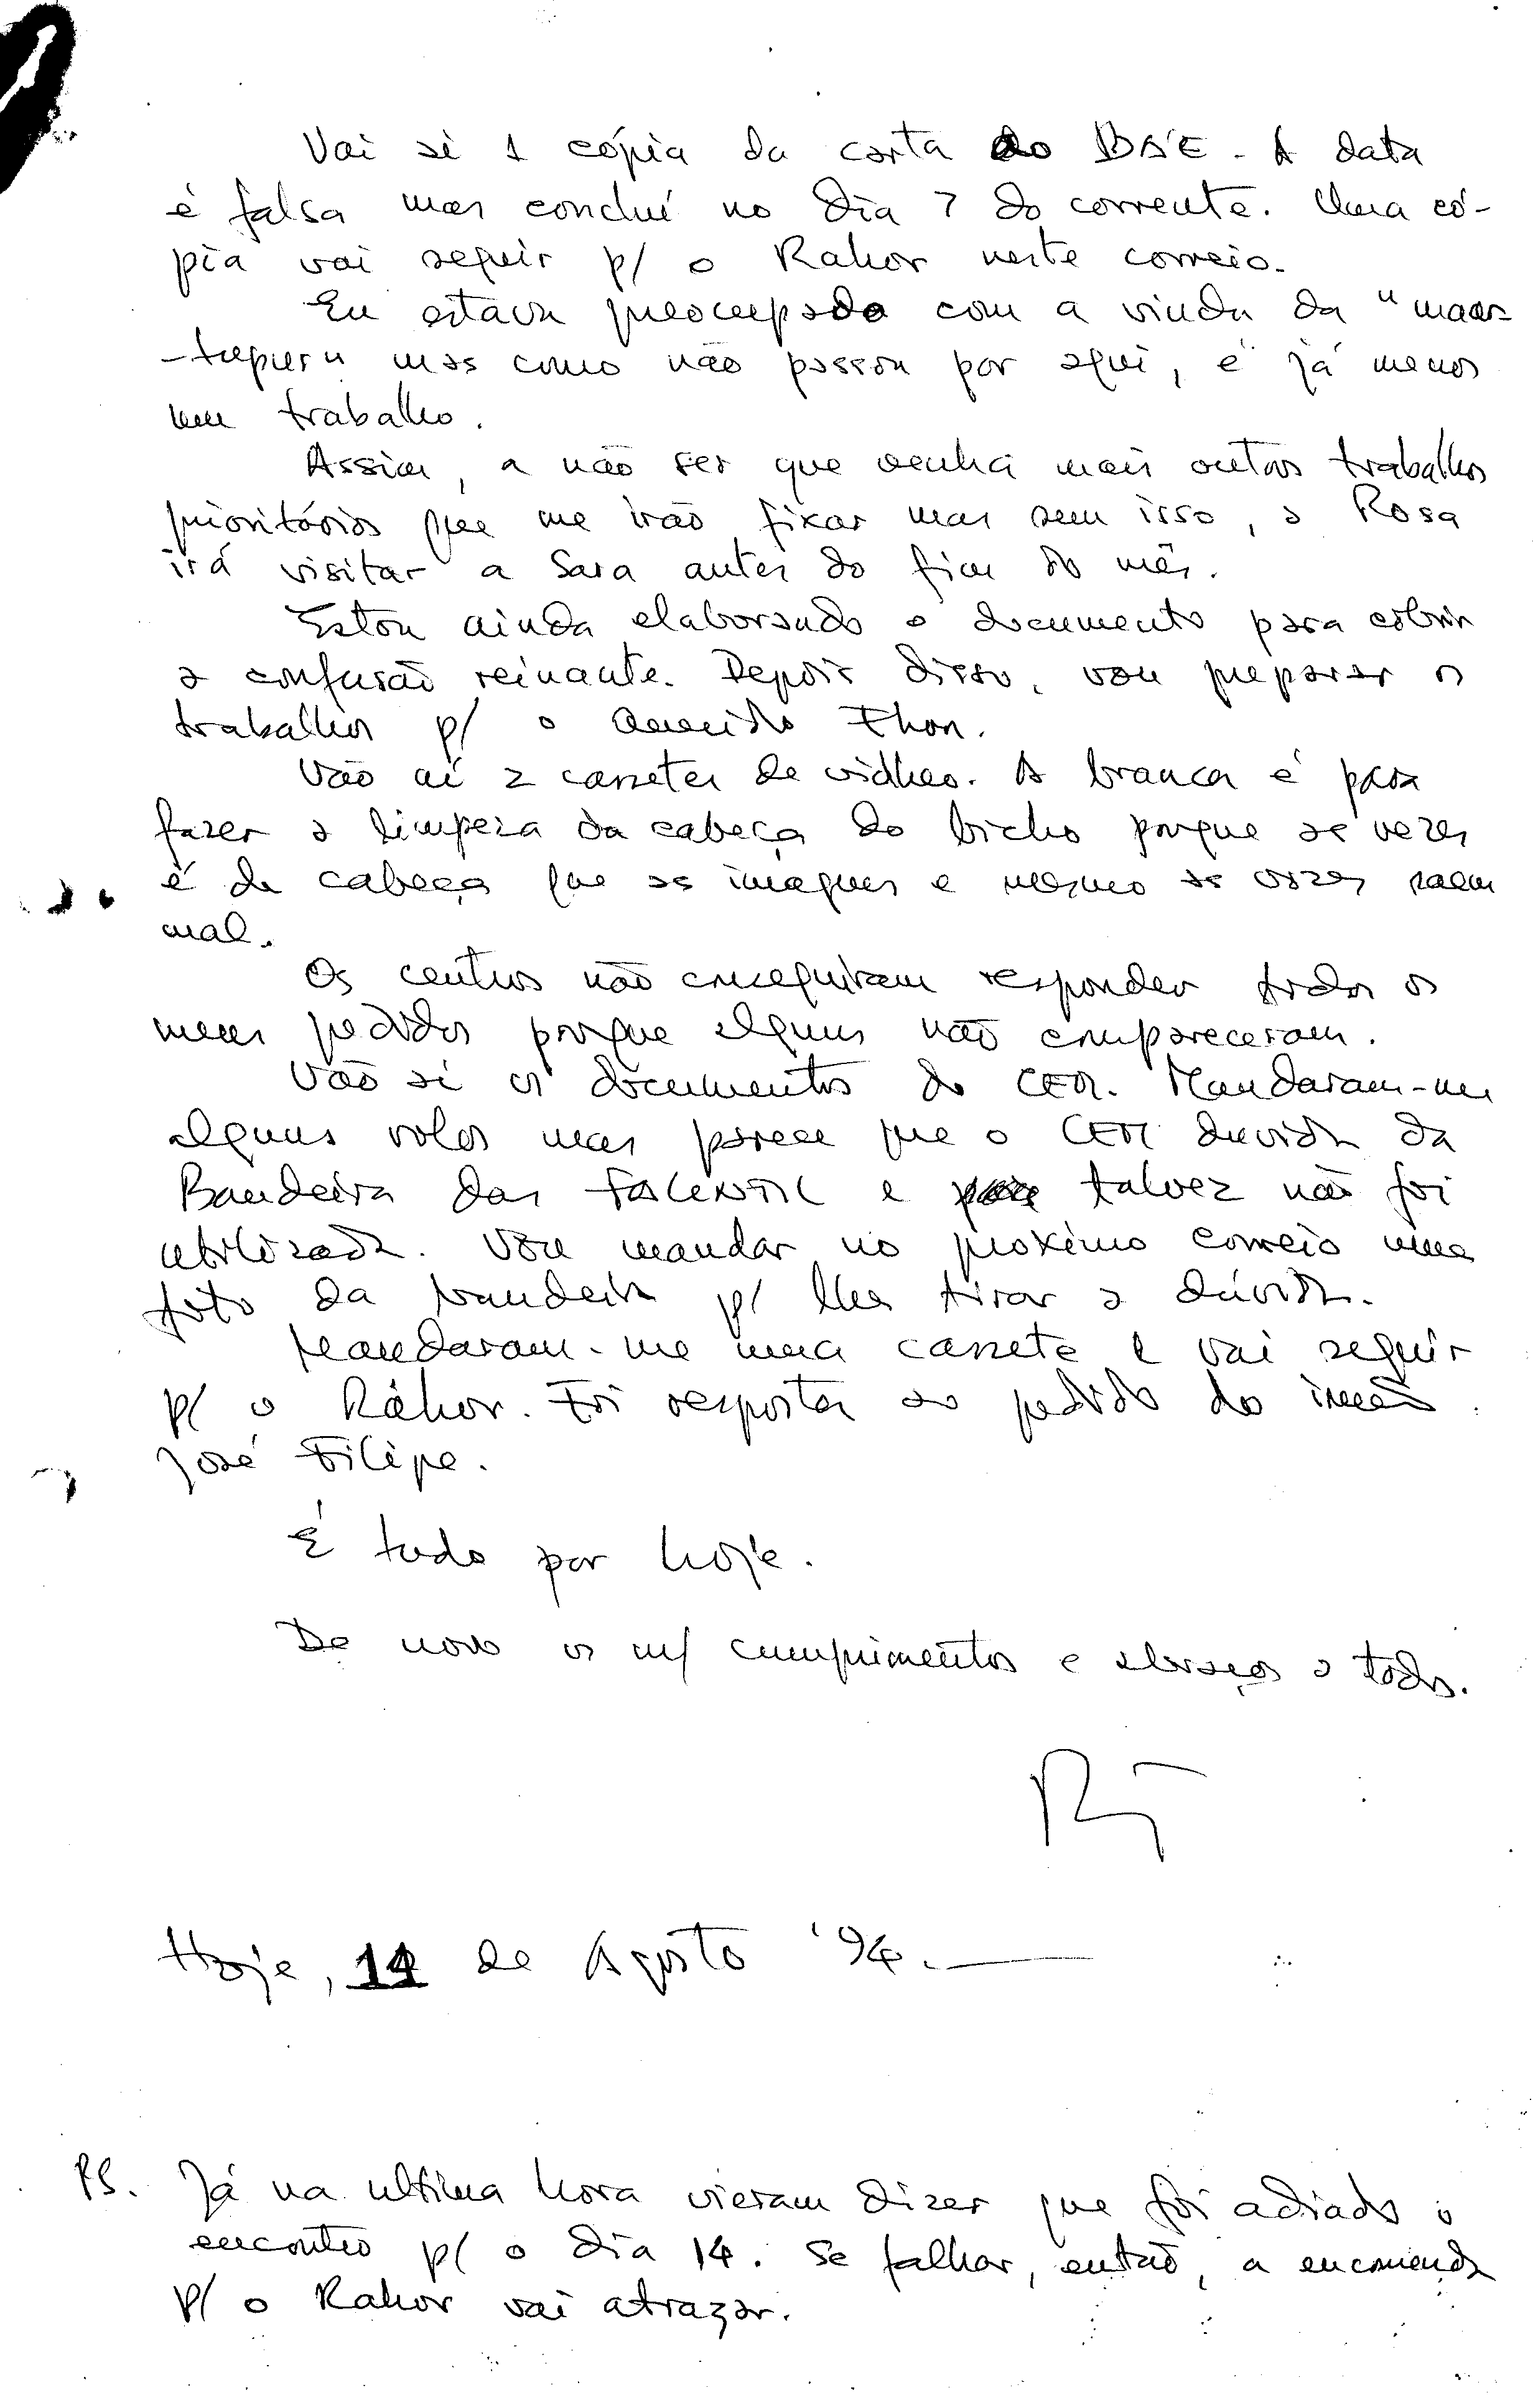 Vai aí 1 cópia da carta do BSE. A data
é falsa mas concluí no dia 7 do corrente. Uma có-
pia vai seguir p/ o Rahor neste correio.
Eu estava preocupado com a vinda da "maas-
-tupier" mas como não passou por aqui, é já menos
um trabalho.
Assim, a não ser que venha mais outros trabalhos
prioritários que me irão fixar mas sem isso, a Rosa
irá visitar a Sara antes do fim do mês.
Estou ainda elaborando o documento para cobrir
a confusão reinante. Depois disso, vou preparar os
trabalhos p/ o Querido Thon.
Vão aí 2 cassetes de vidheo. A branca é para
fazer a limpeza da cabeça do bicho porque às vezes
é da cabeça que as imagens e mesmo as vozes saem
mal.
Os centros não conseguiram responder todos os
meus pedidos porque alguns não compareceram.
Vão aí os documentos do CEM. Mandaram-me
alguns rolos mas parece que o CEM duvida da
Bandeira das FALINTIL e talvez não foi
utilizada. Vou mandar no próximo correio uma
foto da bandeira p/ lhes tirar a dúvida.
Mandaram-me uma cassete e vai seguir
p/ o Ráhor. Foi resposta ao pedido do irmão
José Filipe.
É tudo por hoje.
De novo os m/ cumprimentos e abraços a todos.
Hoje, 11 de Agosto '94.
PS. Já na ultima hora vieram dizer que foi adiado o
encontro p/ o dia 14. Se falhar, então, a encomenda
p/ o Rahor vai atrazar.